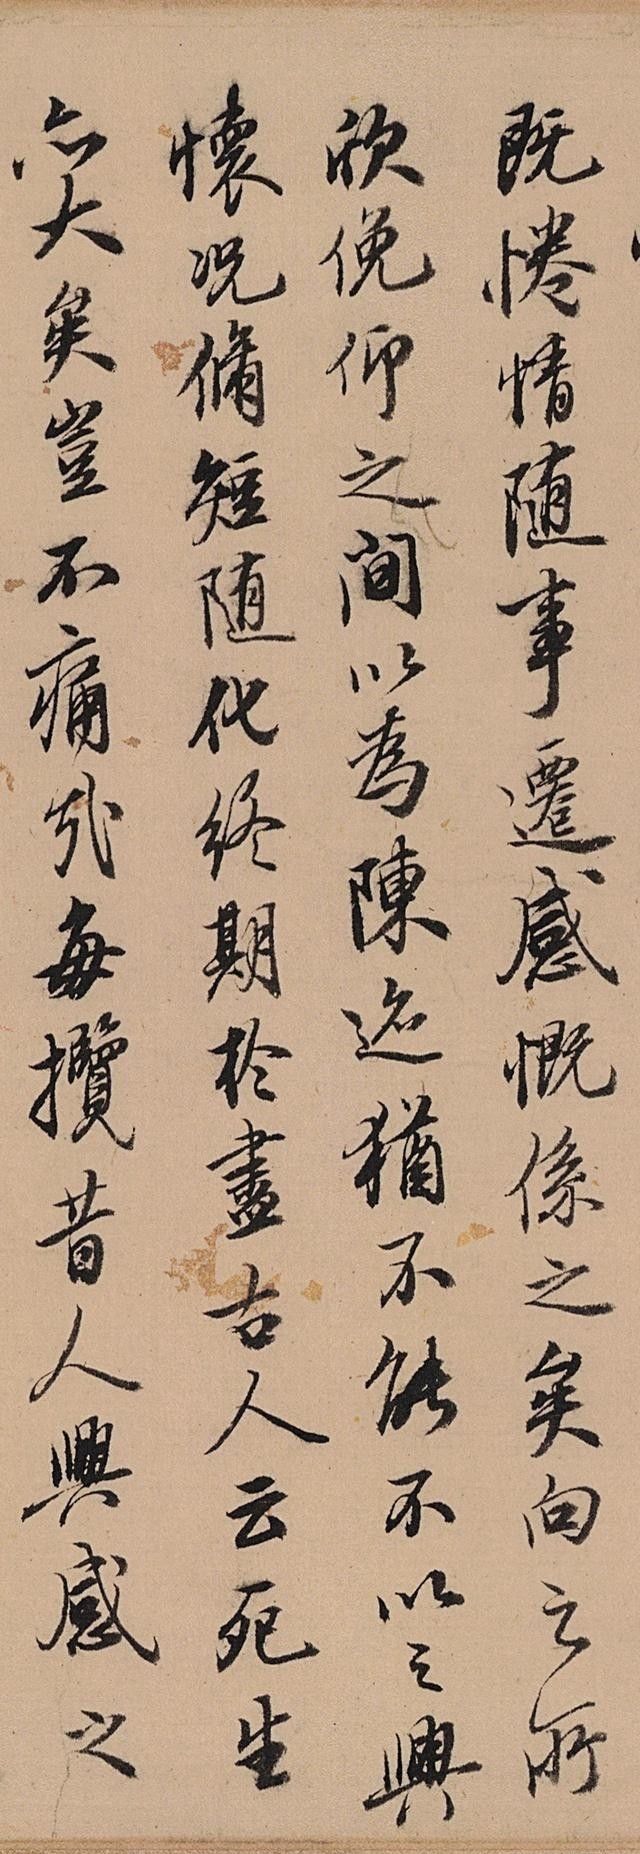 既惓情随事遷感慨係之矣向之所
欣俛仰之間以為陳迹猶不能不以之興
懷況脩短随化終期於盡古人云死生
亦大矣豈不痛哉每攬昔人興感之